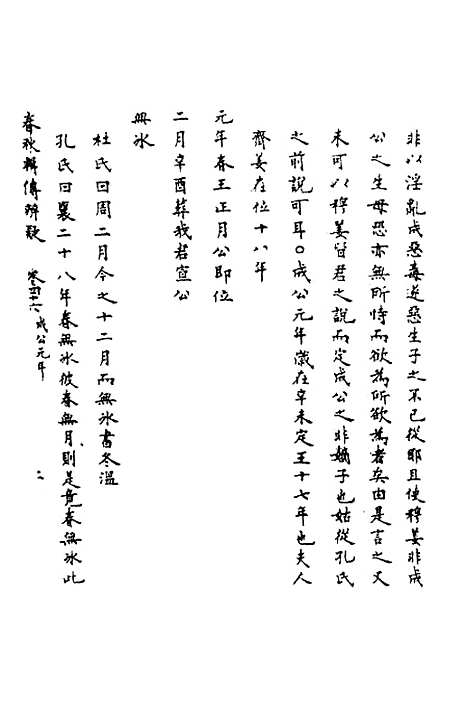 非以淫亂成惡毒逆惡生子之不已從耶且使穆姜非成
公之生母恐亦無所恃而欲為所欲為者矣由是言之又
未可以穆姜皆君之說而定成公之非嫡子也姑從孔氏
之前說可耳○成公元年歲在辛未定王十七年也夫人
齊姜在位十八年
元年春王正月公即位
二月辛酉葬我君宣公
無冰
杜氏曰周二月今之十二月而無冰書冬溫
孔氏曰襄二十八年春無冰彼春無月則是竟春無冰此
春秋輯傳辨疑 卷四十六 成公元年 二